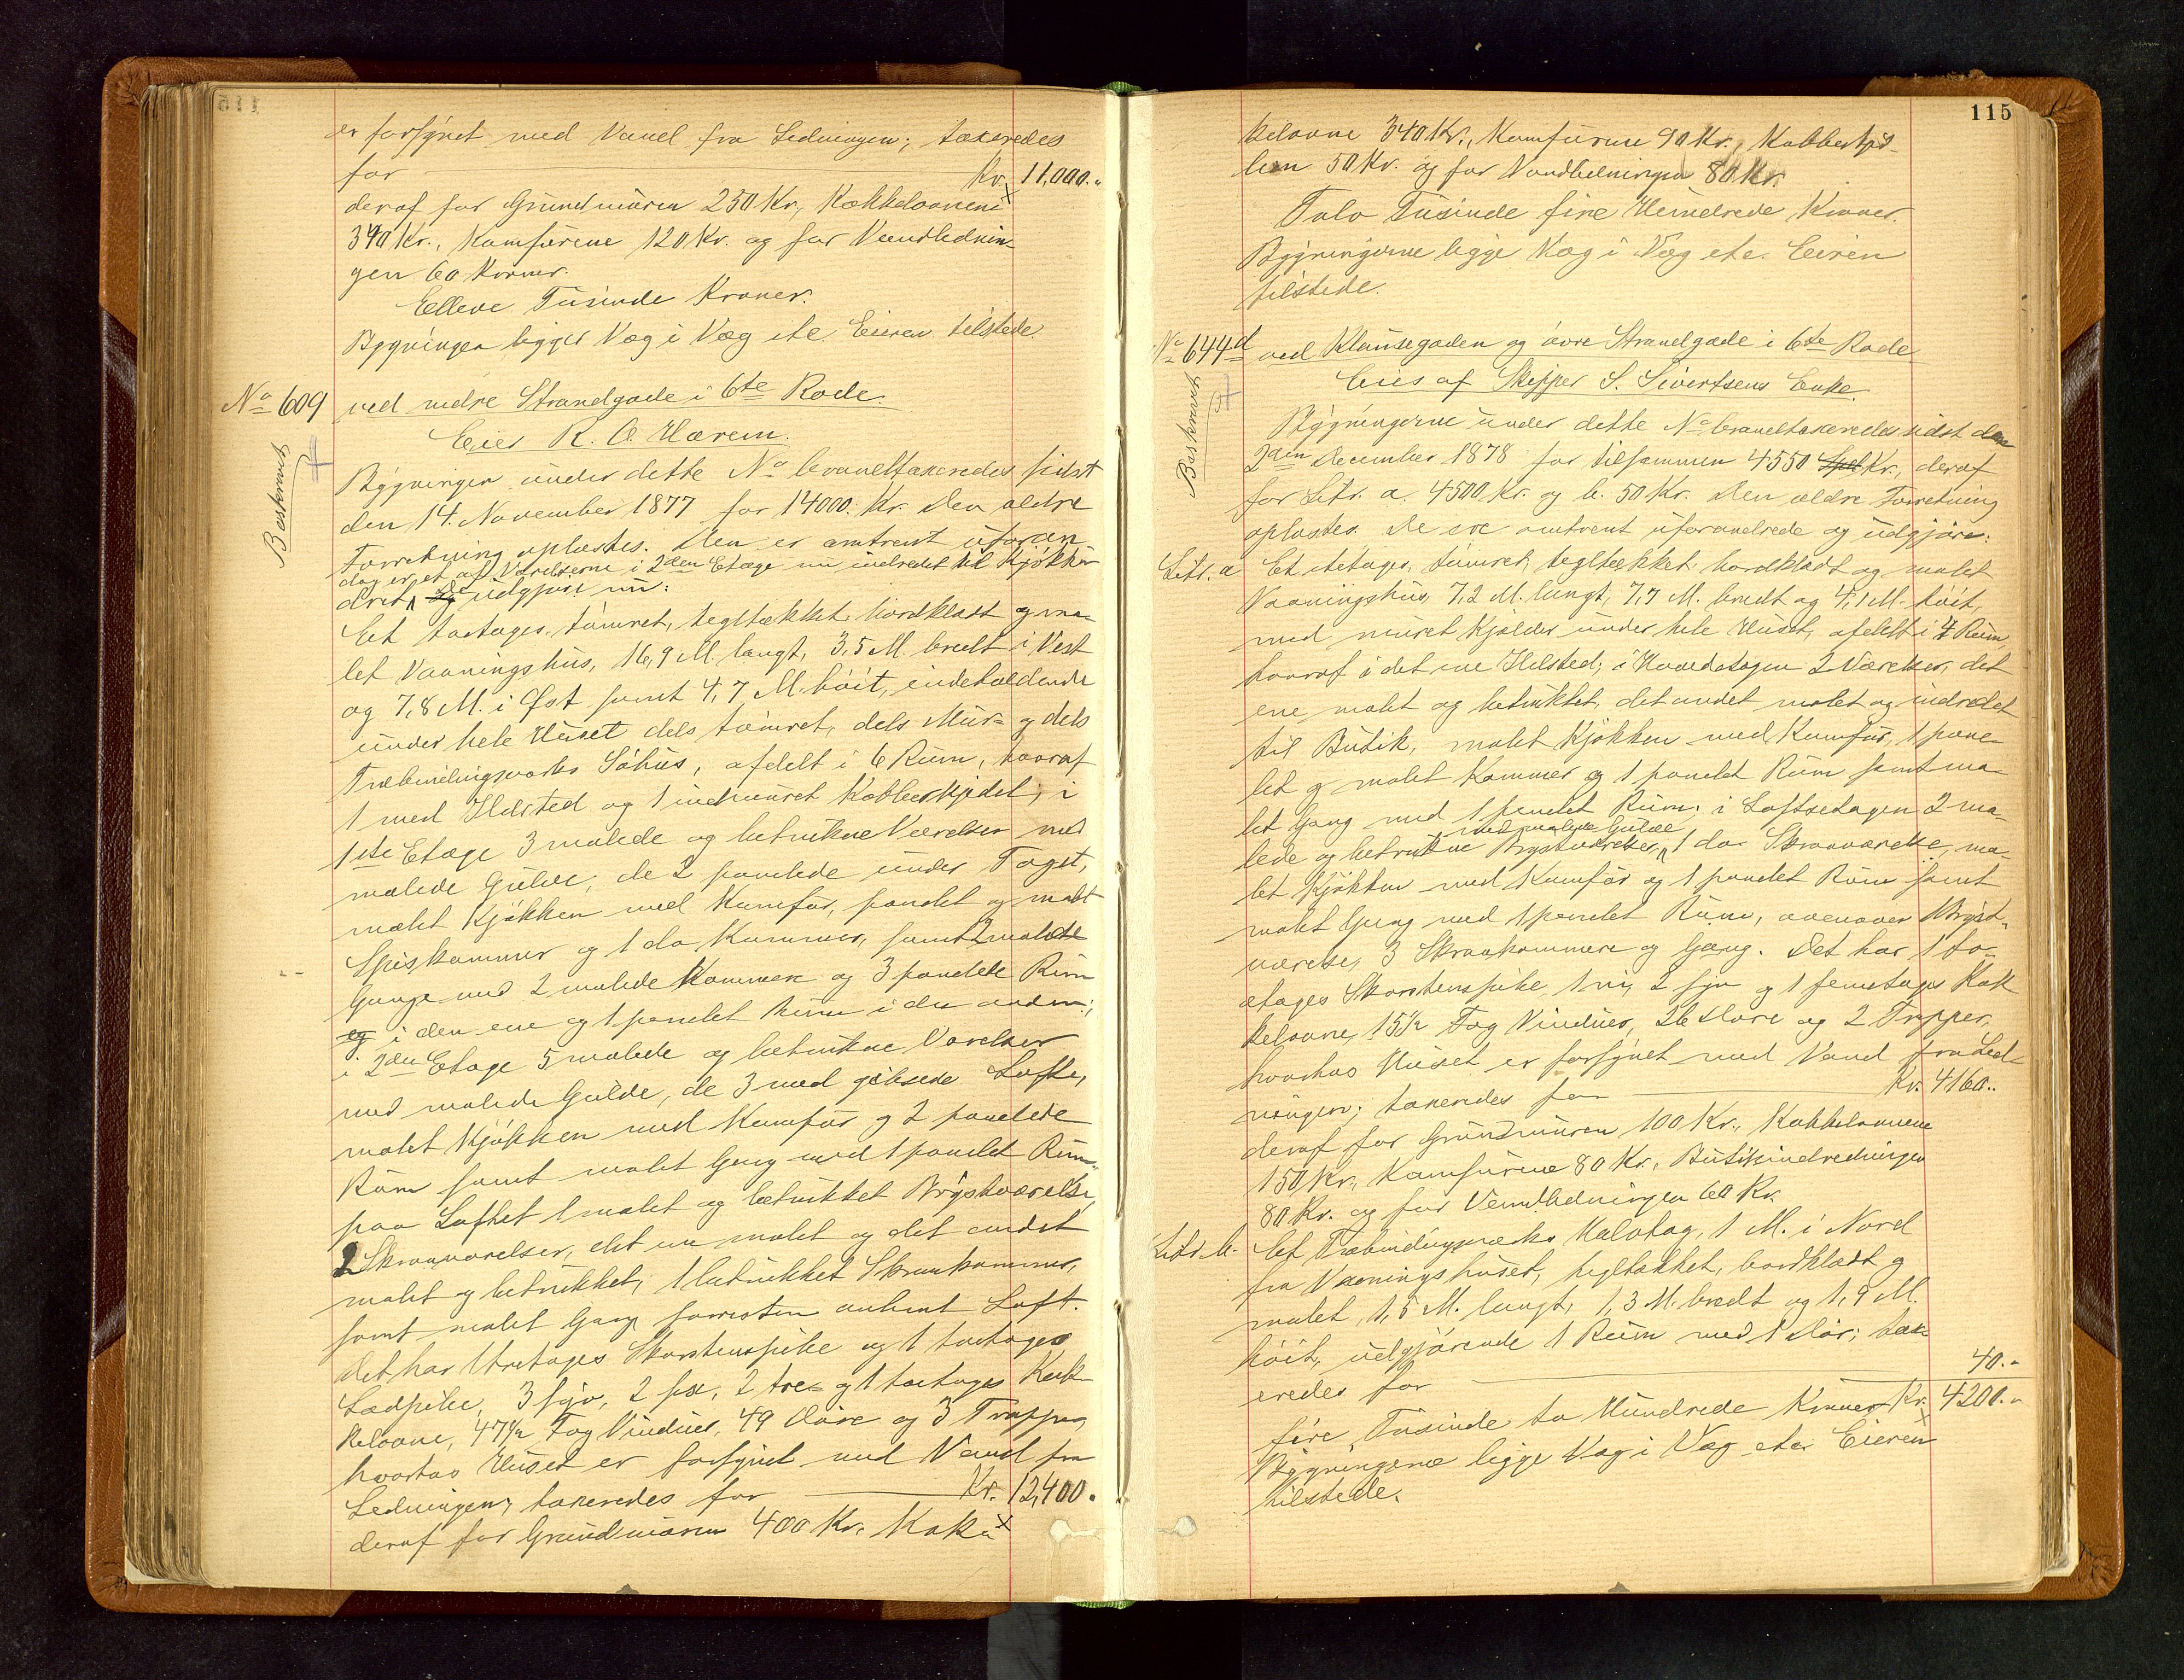 er forsynet med Vand fra Ledningen; taxeredes
for Kr. 11,000.
deraf for Grundmuren 250 Kr., Kakkelovnene
340 Kr., Komfurene 120 Kr. og for Vandlednin-
gen 60 Kroner.
Elleve Tusinde Kroner.
Bygningen ligger Væg i Væg etc. Eieren tilstede.
No 609 ved nedre Strandgade i 6te Rode.
Eies R. O. Hærem.
Beskrevet
Bygningen under dette No brandtaxeredes sidst
den 14. November 1877 for 14000 Kr. Den ældre
Forretning oplæstes. Den er omtrent uforan
dog er et af Værelserne i 2den Etage nu indredet til Kjøkken
dret, og udgjør nu:
Et toetages, tømret, tegltækket, bordklædt og ma-
let Vaaningshus, 16,9 M. langt, 3,5 M. bredt i Vest
og 7,8 M. i Øst samt 4,7 M. høit, indeholdende
under hele Huset dels tømret, dels Mur- og dels
Træbindingsværks Søhus, afdelt i 6 Rum, hvoraf
1 med Ildsted og 1 indmuret Kobberkjedel; i
1ste Etage 3 malede og betrukne Værelser med
malede Gulve, de 2 panelede under Taget,
malet Kjøkken med Komfur, panelet og malet
Spiskammer og 1 do. Kammer, samt 2 malede
Gange med 2 malede Kammere og 3 panelede Rum
og i den ene og 1 panelet Rum i den anden;
i 2den Etage 5 malede og betrukne Værelser
med malede Gulve, de 3 med gibsede Lofte,
malet Kjøkken med Komfur og 2 panelede
Rum samt malet Gang med 1 panelet Rum
paa Loftet 1 malet og betrukket Brystværelse,
2 Skraaværelser, det ene malet og det andet
malet og betrukket, 1 betrukket Skraakammer,
samt malet Gang forresten aabent Loft.
Det har 1 treetages Skorstenspibe og 1 toetages
Lodpibe, 3 syv, 2 sex, 2 tre- og 1 toetages Kak-
kelovne, 47½ Fag Vinduer, 49 Døre og 3 Trapper,
hvorhos Huset er forsynet med Vand fra
Ledningen; taxeredes for Kr. 12,400.
deraf for Grundmuren 400 Kr. Kak
115
kelovne 340 Kr., Komfurene 90 Kr., Kobberkjed-
len 50 Kr. og for Vandledningen 80 Kr.
Tolv Tusinde fire Hundrede Kroner.
Bygningerne ligge Væg i Væg etc. Eieren
tilstede.
No 644d ved Klausegaden og øvre Strandgade i 6te Rode
Eies af Skipper S. Sivertsens Enke.
Beskrevet
Bygningerne under dette No brandtaxeredes sidst den
2den December 1878 for tilsammen 4550 Spd Kr., deraf
for Litr. a. 4500 Kr. og b. 50 Kr. Den ældre Forretning
oplæstes. De ere omtrent uforandrede og udgjøre:
Litr. a Et etetages, tømret, tegltækket, bordklædt og malet
Vaaningshus, 7,2 M. langt, 7,7 M. bredt og 4,1 M. høit,
med muret Kjelder under hele Huset, afdelt i 4 Rum,
hvoraf i det ene Ildsted; i Hovedetagen 2 Værelser, det
ene malet og betrukket, det andet malet og indredet
til Butik, malet Kjøkken med Komfur, 1 pane-
let og malet Kammer og 1 panelet Rum samt ma-
let Gang med 1 panelet Rum; i Loftsetagen 2 ma-
med malede Gulve
lede og betrukne Brystværelser, 1 do. Skraaværelse, ma-
let Kjøkken med Komfur og 1 panelet Rum samt
malet Gang med 1 panelet Rum, ovenover 1 Bryst-
værelse, 3 Skraakammere og Gang. Det har 1 to-
etages Skorstenspibe, 1 ni, 2 syv og 1 femetages Kak-
kelovne, 15½ Fag Vinduer, 26 Døre og 2 Trapper,
hvorhos Huset er forsynet med Vand fra Led-
ningen; taxeredes for Kr. 4160..
deraf for Grundmuren 100 Kr., Kakkelovnene
150 Kr., Komfurene 80 Kr., Butikindredningen
80 Kr. og for Vandledningen 60 Kr.
Litr. b. Et Træbindingsværks Halvtag, 1 M. i Nord
fra Vaaningshuset, tegltækket, bordklædt og
malet, 1,5 M. langt, 1,3 M. bredt og 1,9 M.
høit, udgjørende 1 Rum med 1 Dør; tax-
eredes for 40.-
fire Tusinde to Hundrede Kroner Kr. 4200.-
Bygningerne ligge Væg i Væg etc. Eieren
tilstede.